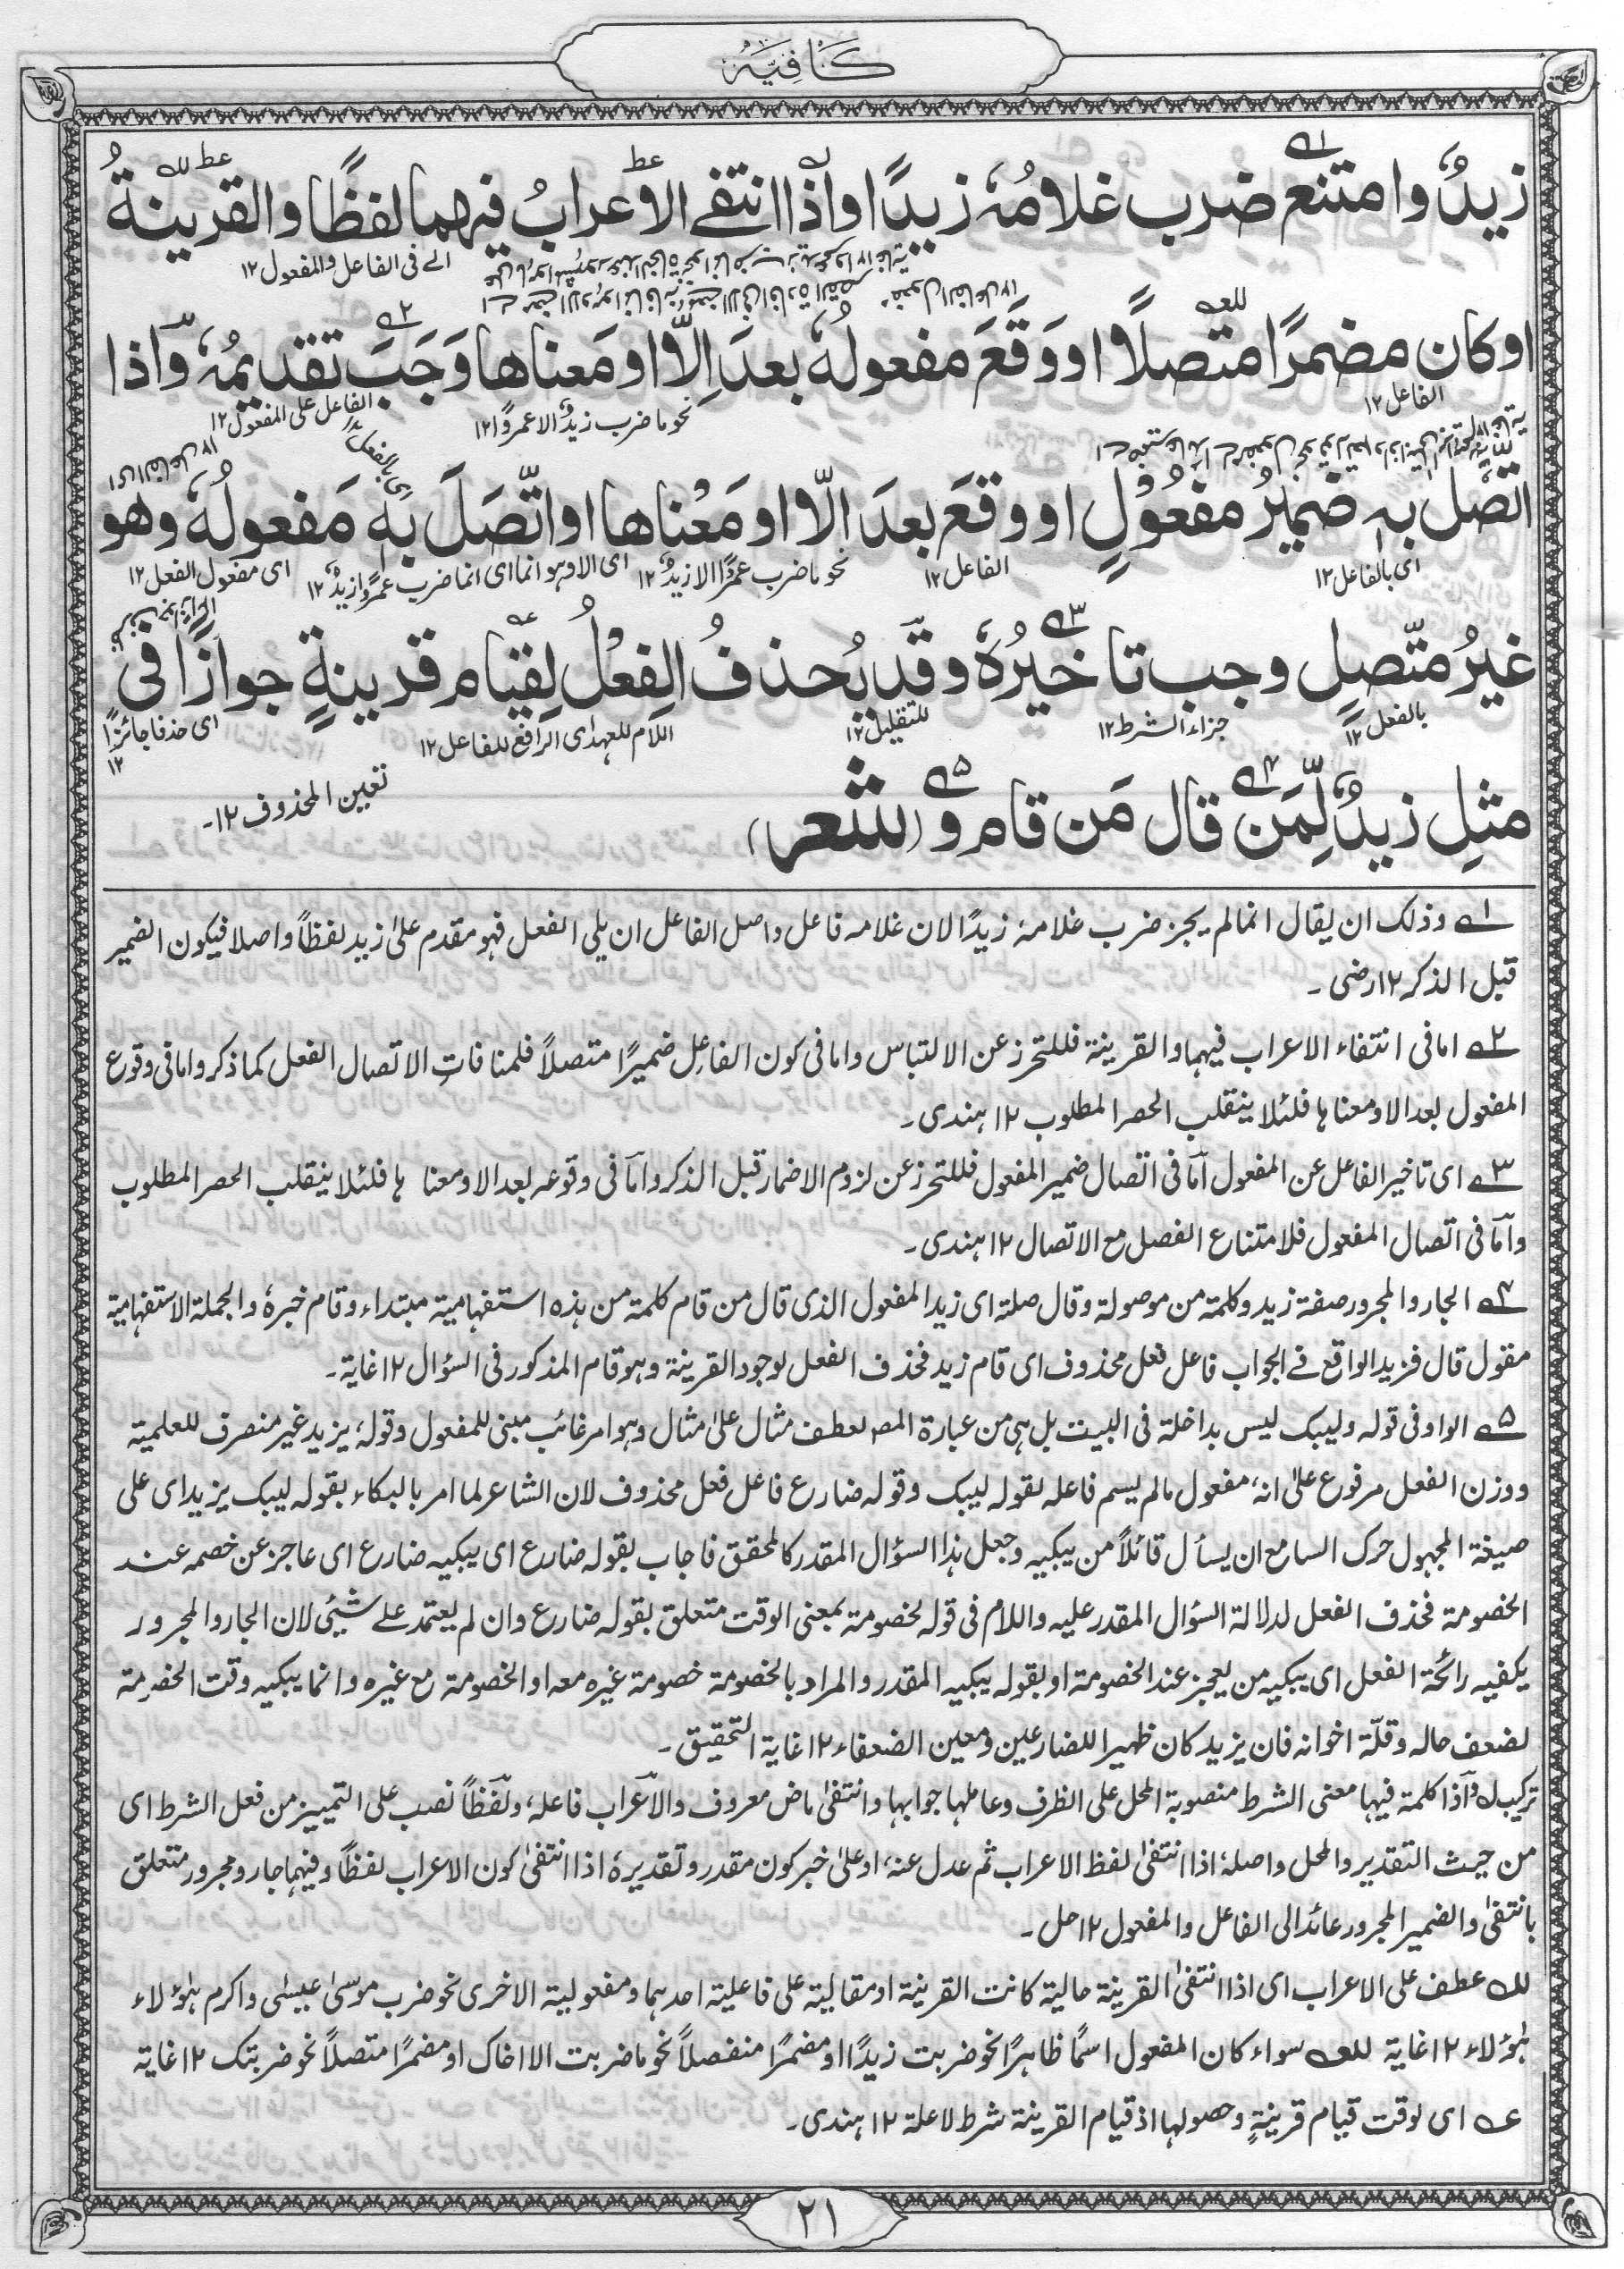 كَافِيَة
زيدٌ وامتنع ضرب غلامُهٗ زيدًا واذا انتفے الاعرابُ فيهما لفظًا والقرينةُ
اے فی الفاعل والمفعول ١٢
اوكان مضمرًا متصلًا او وَقَعَ مفعولُهٗ بعدَ اِلّا او مَعناها وَجَبَ تقديمُهٗ واذا
الفاعل ١٢
نحو ما ضرب زیدٌ الا عمروًا ١٢
الفاعل علی المفعول ١٢
اتّصل بہٖ ضميرُ مفعُولٍ او وقعَ بعدَ الّا او مَعْناها او اتّصَلَ بهٖ مَفعولُهٗ وهو
ای بالفاعل ١٢
الفاعل ١٢
نحو ما ضرب عمرًوا الا زیدٌ ١٢
ای الا وہو انما ای انما ضرب عمرًوا زیدٌ ١٢
ای مفعول الفعل ١٢
غيرُ متّصِلٍ وجب تاخيرُهٗ وقد يُحذفُ الفِعْلُ لِقيَام قرينةٍ جوازًا فی
بالفعل ١٢
جزاء الشرط ١٢
للتقلیل ١٢
اللام للعہد ای الرافع للفاعل ١٢
ای حذفا جائزًا ١٢
مثلِ زيدٌ لِّمَن قال مَن قام و (شعر)
تعیین المحذوف ١٢۔
١ے وذلک ان یقال انما لم یجز ضرب غلامہٗ زیدًا لان غلامہ فاعل واصل الفاعل ان یلی الفعل فہو مقدم علیٰ زید لفظاً واصلا فیکون الضمیر
قبل الذکر ١٢ رضی ۔
٢ے اما فی انتفاء الاعراب فیہما والقرینۃ فللتحرز عن الالتباس واما فی کون الفاعل ضمیرًا متصلاً فلمنافات الاتصال الفعل کما ذکر واما فی وقوع
المفعول بعد الا ومعناہا فلئلا ینقلب الحصر المطلوب ١٢ ہندی ۔
٣ے ای تاخیر الفاعل عن المفعول اَمّا فی اتصال ضمیر المفعول فللتحرز عن لزوم الاضمار قبل الذکر واَمّا فی وقوعہ بعد الا ومعناہا فلئلا ینقلب الحصر المطلوب
واَمّا فی اتصال المفعول فلامتناع الفصل مع الاتصال ١٢ ہندی ۔
٤ے الجار والمجرور صفۃ زید وکلمۃ من موصولۃ وقال صلۃ ای زید المفعول الذی قال من قام کلمۃ من ہذہ استفہامیۃ مبتداء وقام خبرہٗ والجملۃ الاستفہامیۃ
مقول قال فزید الواقع فے الجواب فاعل فعل محذوف ای قام زید فحذف الفعل لوجود القرینۃ وہو قام المذکور فی السؤال ١٢ غایۃ ۔
٥ے الواو فی قولہ ولیبک لیس بداخلۃ فی البیت بل ہی من عبارۃ المصـ لعطف مثال علیٰ مثال وہو امر غائب مبنی للمفعول وقولہٗ یزید غیر منصرف للعلمیۃ
ووزن الفعل مرفوع علیٰ انہٗ مفعول مالم یسم فاعلہ لقولہ لیبک وقولہ ضارع فاعل فعل محذوف لان الشاعر لما امر بالبکاء بقولہ لیبک یزید ای علی
صیغۃ المجہول حرک السامع ان یسأل قائلاً من یبکیہ وجعل ہذا السؤال المقدر کالمحقق فاجاب بقولہ ضارع ای یبکیہ ضارع ای عاجز عن خصمہ عند
الخصومۃ فحذف الفعل لدلالۃ السؤال المقدر علیہ واللام فی قولہ لخصومۃ بمعنی الوقت متعلق بقولہ ضارع وان لم یعتمد علے شیئی لان الجار والمجرور
یکفیہ رائحۃ الفعل ای یبکیہ من یعجز عند الخصومۃ او بقولہ یبکیہ المقدر والمراد بالخصومۃ خصومۃ غیرہ معہ او الخصومۃ مع غیرہ وانما یبکیہ وقت الخصومۃ
لضعف حالہ وقلّۃ اخوانہ فان یزید کان ظہیرا للضارعین ومعین الضعفاء ١٢ غایۃ التحقیق ۔
ترکیب لہ واذا کلمۃ فیہا معنی الشرط منصوبۃ المحل علی الظرف وعاملہا جوابہا وانتفیٰ ماض معروف والاعراب فاعلہٗ ولفظاً نصب علی التمییز من فعل الشرط ای
من حیث التقدیر والمحل واصلہٗ اذا انتفیٰ لفظ الاعراب ثم عدل عنہٗ او علیٰ خبر کون مقدر وتقدیرہٗ اذا انتفیٰ کون الاعراب لفظاً وفیہما جار ومجرور متعلق
بانتفیٰ والضمیر المجرور عائد الی الفاعل والمفعول ١٢ حل ۔
للہ عطف علی الاعراب ای اذا انتفیٰ القرینۃ حالیۃ کانت القرینۃ او مقالیۃ علی فاعلیۃ احدہما ومفعولیۃ الاخری نحو ضرب موسیٰ عیسٰی واکرم ہٰؤلاء
ہٰؤلاء ١٢ غایۃ للعہ سواء کان المفعول اسمًا ظاہرًا نحو ضربت زیدًا او مضمرًا منفصلاً نحو ما ضربت الا اخاک او مضمرًا متصلاً نحو ضربتک ١٢ غایۃ
عہ ای لوقت قیام قرینۃٍ وحصولہا اذ قیام القرینۃ شرط لا علۃ ١٢ ہندی ۔
٢١